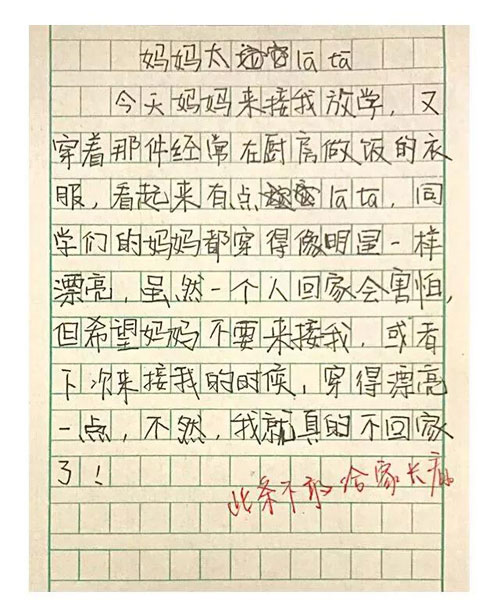 妈妈太lā tā
今天妈妈来接我放学，又
穿着那件经常在厨房做饭的衣
服，看起来有点lā tā，同
学们的妈妈都穿得像明星一样
漂亮，虽然一个人回家会害怕，
但希望妈妈不要来接我，或者
下次来接我的时候，穿得漂亮
一点，不然，我就真的不回家
了！
此条不敢给家长看